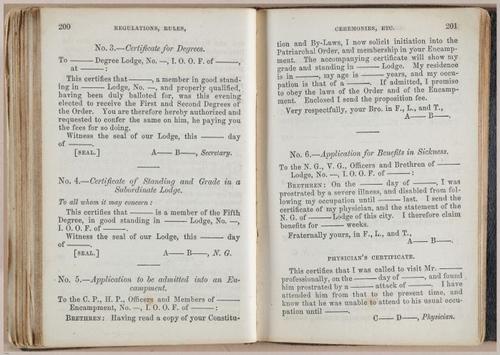 200 REGULATIONS, RULES,
No. 3.—Certificate for Degrees.
To —— Degree Lodge, No. —, I. O. O. F. of ——,
at ——:
This certifies that ——, a member in good stand-
ing in —— Lodge, No. —, and properly qualified,
having been duly balloted for, was this evening
elected to receive the First and Second Degrees of
the Order. You are therefore hereby authorized and
requested to confer the same on him, he paying you
the fees for so doing.
Witness the seal of our Lodge, this —— day
of ——.
[SEAL.] A—— B——, Secretary.
No. 4.—Certificate of Standing and Grade in a
Subordinate Lodge.
To all whom it may concern:
This certifies that —— is a member of the Fifth
Degree, in good standing in —— Lodge, No. —,
I. O. O. F. of ——.
Witness the seal of our Lodge, this —— day
of ——.
[SEAL.] A—— B——, N. G.
No. 5.—Application to be admitted into an En-
campment.
To the C. P., H. P., Officers and Members of ——
Encampment, No. —, I. O. O. F. of ——:
BRETHREN: Having read a copy of your Constitu-
CEREMONIES, ETC. 201
tion and By-Laws, I now solicit initiation into the
Patriarchal Order, and membership in your Encamp-
ment. The accompanying certificate will show my
grade and standing in —— Lodge. My residence
is in ——, my age is —— years, and my occu-
pation is that of a ——. If admitted, I promise
to obey the laws of the Order and of the Encamp-
ment. Enclosed I send the proposition fee.
Very respectfully, your Bro. in F., L., and T.,
A—— B——.
No. 6.—Application for Benefits in Sickness.
To the N. G., V. G., Officers and Brethren of ——
Lodge, No. —, I. O. O. F. of ——:
BRETHREN: On the —— day of ——, I was
prostrated by a severe illness, and disabled from fol-
lowing my occupation until —— last. I send the
certificate of my physician, and the statement of the
N. G. of —— Lodge of this city. I therefore claim
benefits for —— weeks.
Fraternally yours, in F., L., and T.,
A—— B——.
PHYSICIAN'S CERTIFICATE.
This certifies that I was called to visit Mr. ——
professionally, on the —— day of ——, and found
him prostrated by a —— attack of ——. I have
attended him from that to the present time, and
know that he was unable to attend to his usual occu-
pation until ——.
C—— D——, Physician.